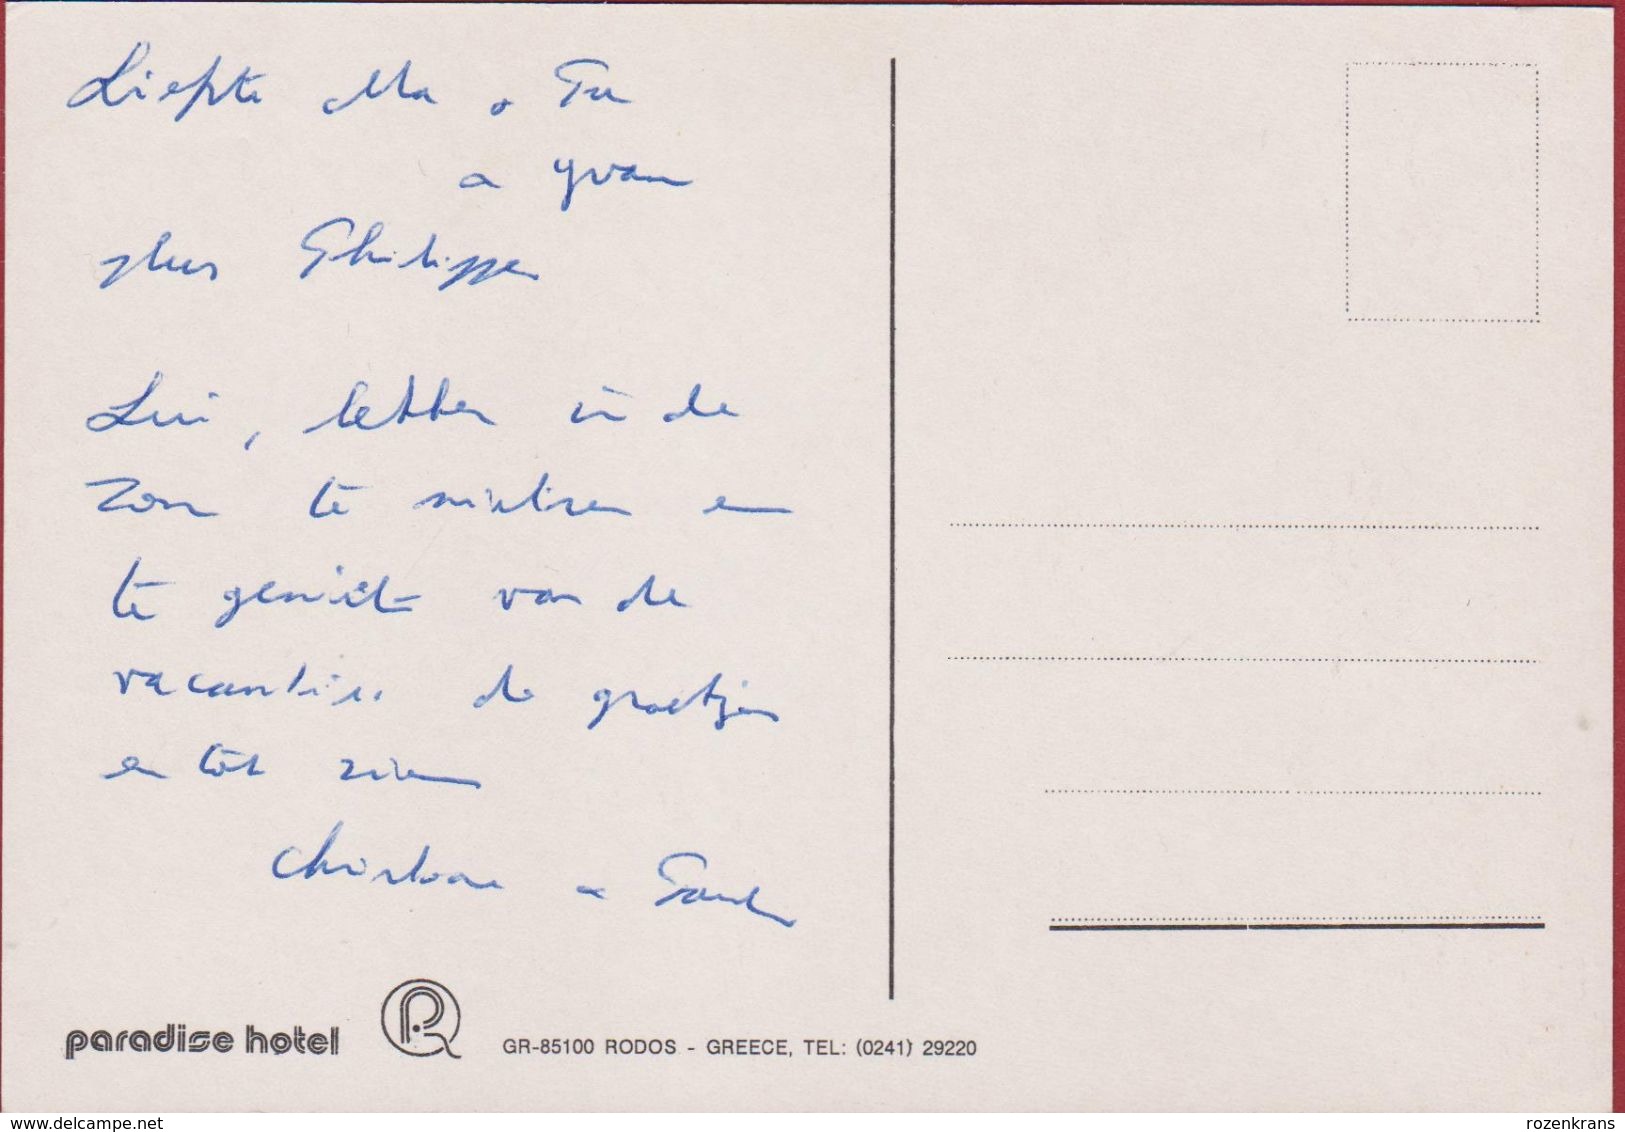 Liefste Ma + Pa
+ Yvan
plus Philippe
hebben in de
zon te en
te geniet van de
vacantie. de groetjes
en tot ziens
Christiane + Paul
paradise hotel
GR-85100 RODOS - GREECE, TEL: (0241) 29220
delcampe.net
rozenkrans